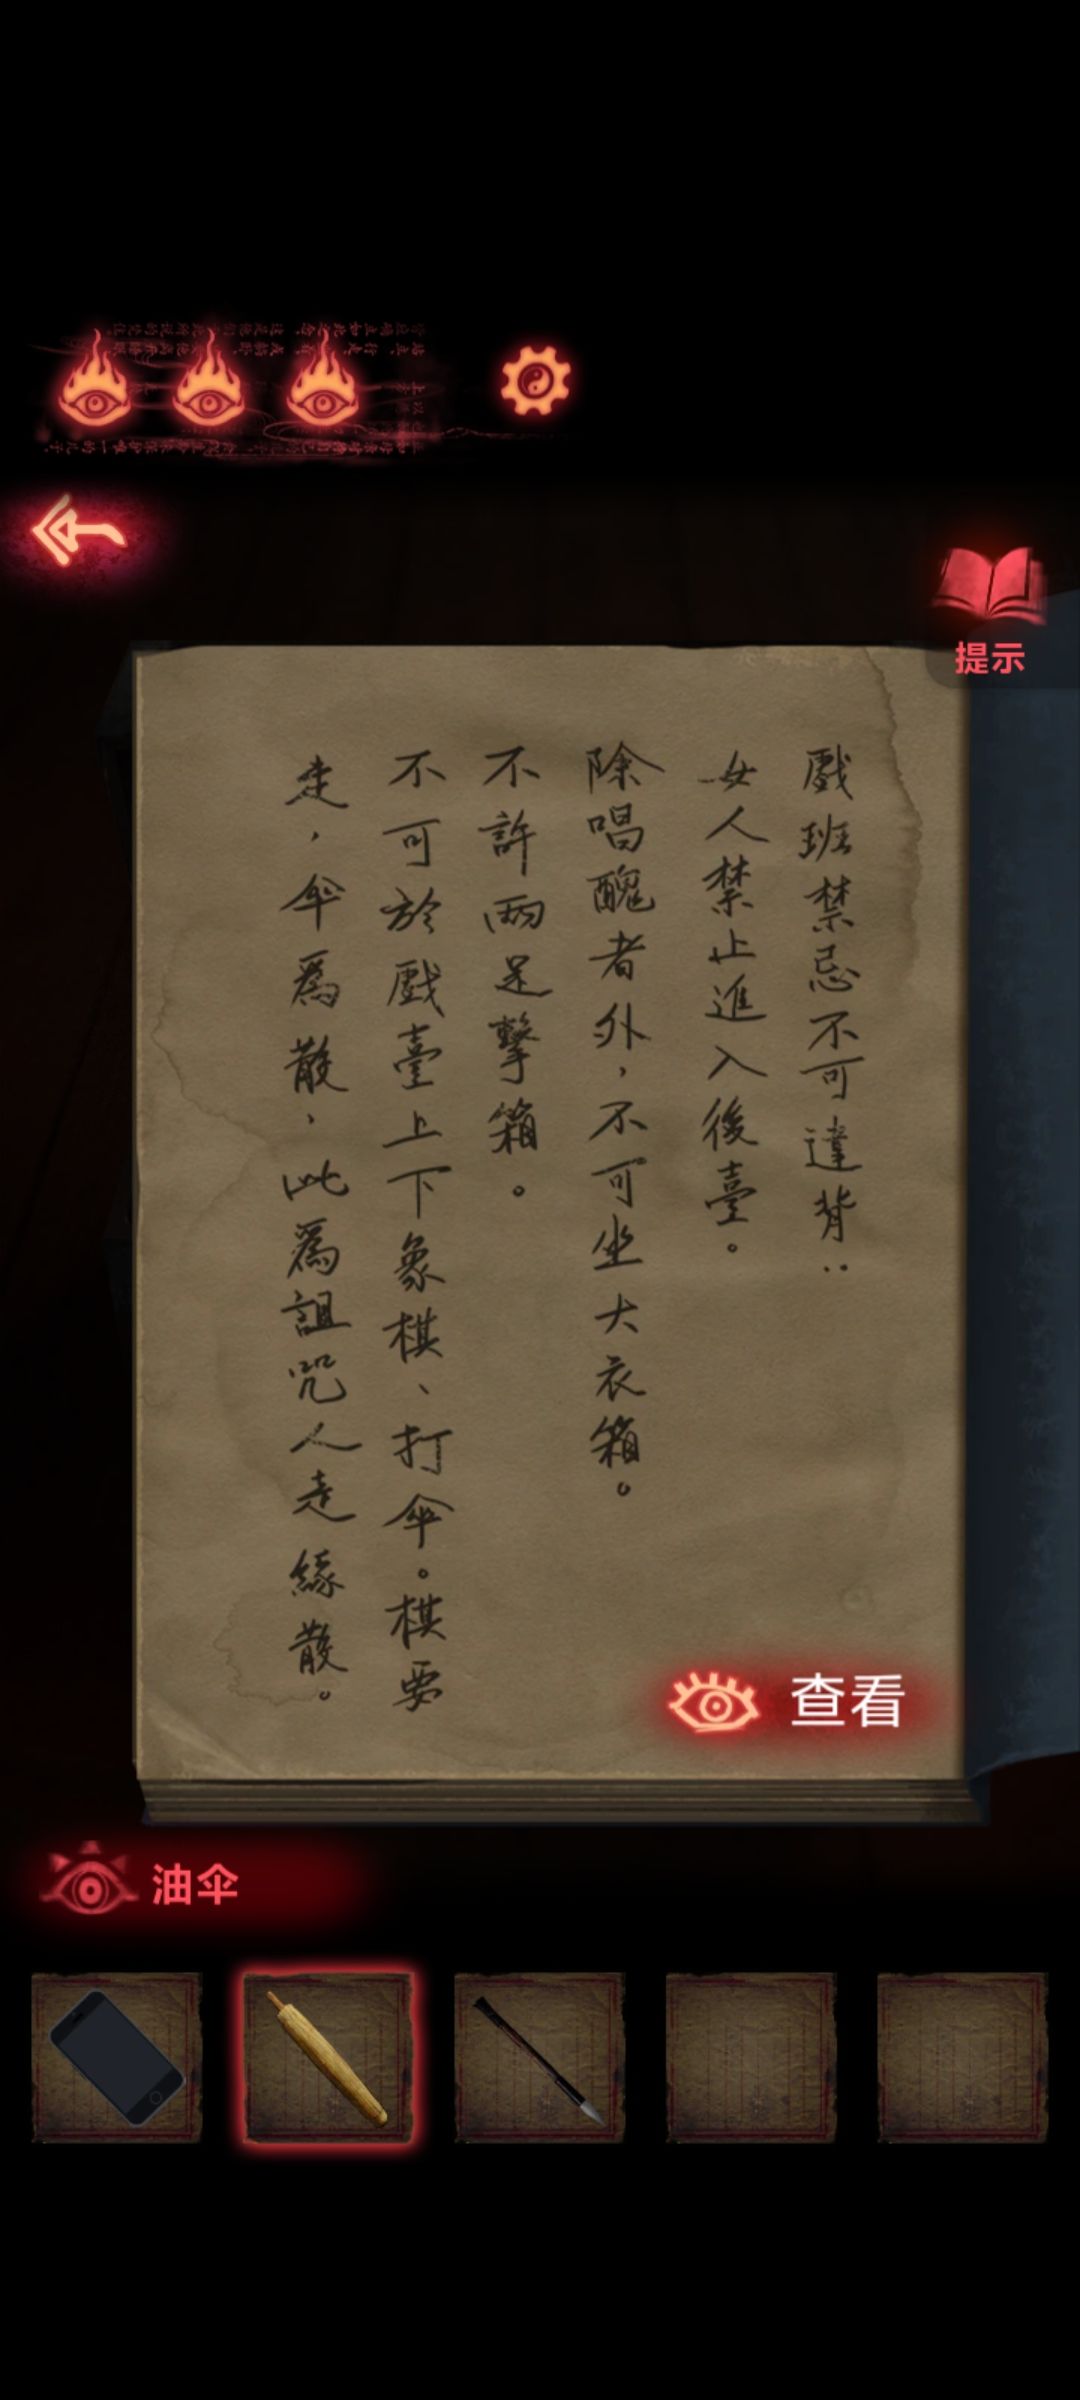 提示
戲班禁忌不可違背：
女人禁止進入後臺。
除唱醜者外，不可坐大衣箱。
不許兩足擊箱。
不可於戲臺上下象棋、打傘。棋要
走，傘爲散，此爲詛咒人走緣散。
查看
油伞